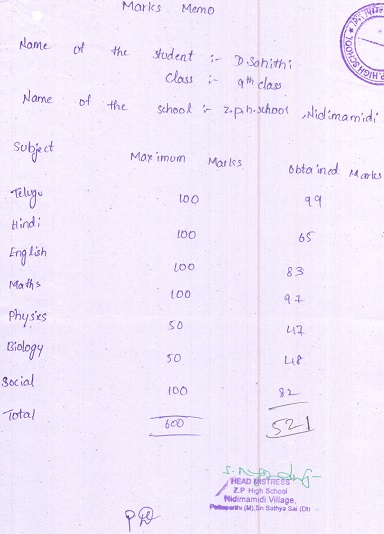 Marks Memo
Name of the student :- D. Sahithi
Class :- 9th class.
Name of the school :- Z.p.h. school , Nidimamidi
Subject Maximum Marks Obtained Marks
Telugu 100 99
Hindi 100 65
English 100 83
Maths 100 97
Physics 50 47
Biology 50 48
Social 100 82
Total 600 521
HEAD MISTRESS
Z.P. High School
Nidimamidi Village,
(M), Sri Sathya Sai (Dt)